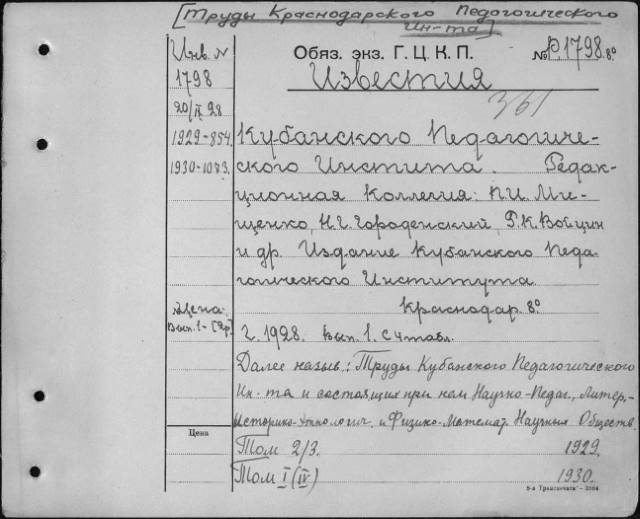 [Труды Краснодарского Педогогического
Ин-та]
Инв. N
Обяз. экз. Г. Ц. К. П.
№ P.1798. 8º
1798
Известия
361
20/IX 28
1929-854.
1930-1083.
Кубанского Педагогиче-
ского Института. Редак-
ционная Коллегия: П.И. Ми-
щенко, Н.Г. Городенский, Г.К. Войцин
и др. Издание Кубанского Педа-
гогического Института.
Краснодар. 8º
Цена:
Вып. 1-[2р]
г. 1928. Вып. 1. с 4 табл.
Далее назыв.: Труды Кубанского Педагогического
Ин-та и состоящих при нем Научно-Педаг., Литер.-
Историко-Этнологич. и Физико-Математ. Научных Обществ.
Цена
Том 2/3. 1929.
Том I (IV) 1930.
5-я Транспечать — 3564